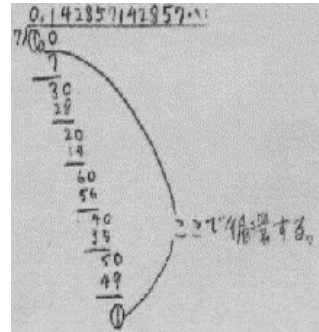 0.142857142857...
7/1.0
7
30
28
20
14
60
56
40
35
50
49
1
ここで循環する。